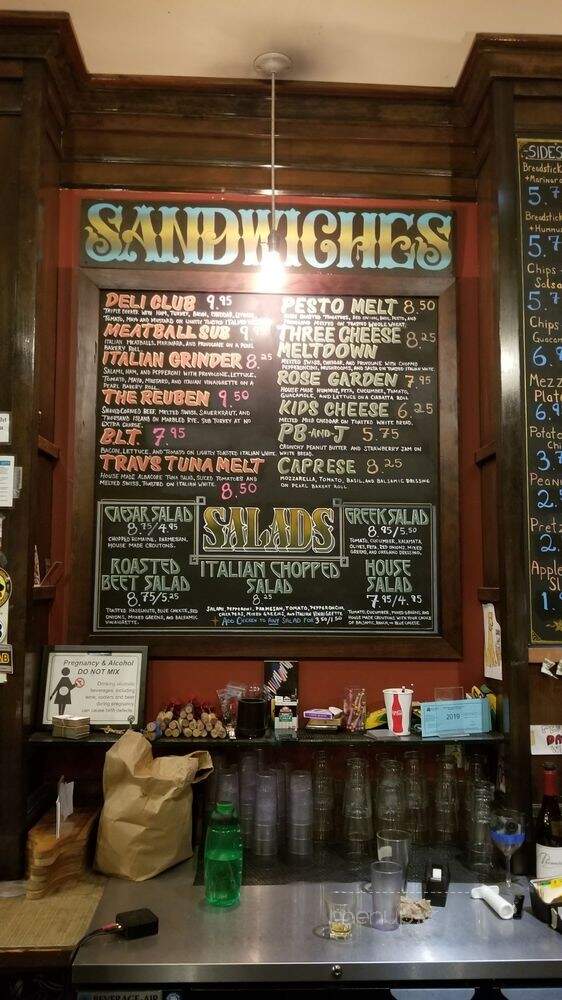 SANDWICHES
DELI CLUB 9.95
TRIPLE DECKER WITH HAM, TURKEY, BACON, CHEDDAR, LETTUCE,
TOMATO, MAYO AND MUSTARD ON LIGHTLY TOASTED ITALIAN
MEATBALL SUB 9.
ITALIAN MEATBALLS, MARINARA, AND PROVOLONE ON A PEARL
BAKERY ROLL
ITALIAN GRINDER 8.25
SALAMI, HAM, AND PEPPERONI WITH PROVOLONE, LETTUCE,
TOMATO, MAYO, MUSTARD, AND ITALIAN VINAIGRETTE ON A
PEARL BAKERY ROLL
THE REUBEN 9.50
CORNED BEEF, MELTED SWISS, SAUERKRAUT, AND
THOUSAND ISLAND ON MARBLED RYE. SUB TURKEY AT NO
EXTRA CHARGE.
BLT 7.95
BACON, LETTUCE, AND TOMATO ON LIGHTLY TOASTED ITALIAN WHITE.
TRAV'S TUNA MELT
HOUSE MADE ALBACORE TUNA SALAD, SLICED TOMATOES AND
MELTED SWISS, TOASTED ON ITALIAN WHITE.
8.50
PESTO MELT 8.50
TOMATOES, RED ONION, BASIL PESTO, AND
PROVOLONE MELTED ON TOASTED WHOLE WHEAT.
THREE CHEESE 8.25
MELTDOWN
MELTED SWISS, CHEDDAR, AND PROVOLONE WITH CHOPPED
PEPPERONCINI, MUSHROOMS, AND SALSA ON TOASTED ITALIAN WHITE
ROSE GARDEN 7.95
HOUSE MADE HUMMUS, FETA, CUCUMBER, TOMATO,
GUACAMOLE, AND LETTUCE ON A CIABATTA ROLL
KIDS CHEESE 6.25
MELTED MILD CHEDDAR ON TOASTED WHITE BREAD.
PB-AND-J 5.75
CRUNCHY PEANUT BUTTER AND STRAWBERRY JAM ON
WHITE BREAD.
CAPRESE 8.25
MOZZARELLA, TOMATO, BASIL, AND BALSAMIC DRESSING
ON PEARL BAKERY ROLL
SALADS
CAESAR SALAD
8.75/4.95
CHOPPED ROMAINE, PARMESAN,
HOUSE MADE CROUTONS.
GREEK SALAD
8.95/5.50
TOMATO, CUCUMBER, KALAMATA
OLIVES, FETA, RED ONIONS, MIXED
GREENS, AND OREGANO DRESSING.
ROASTED
BEET SALAD
8.75/5.25
TOASTED HAZELNUTS, BLUE CHEESE, RED
ONIONS, MIXED GREENS, AND BALSAMIC
VINAIGRETTE.
ITALIAN CHOPPED
SALAD
8.25
SALAMI, PEPPERONI, PARMESAN, TOMATO, PEPPERONCINI,
CHICKPEAS, MIXED GREENS, AND ITALIAN VINAIGRETTE
ADD CHICKEN TO ANY SALAD FOR 3.50/1.50
HOUSE
SALAD
7.95/4.95
TOMATO, CUCUMBER, MIXED GREENS, AND
HOUSE MADE CROUTONS WITH YOUR CHOICE
OF BALSAMIC, RANCH, OR BLUE CHEESE.
SIDES
Breadstick
+Marinara
5.7
Breadstick
+Hummus
5.7
Chips
Salsa
5.7
Chips
Guacam
6.
Mezz
Plat
6.9
Potato
Chi
3.7
Peanu
2.
Pretz
2.
Apple
Sl
1.
Pregnancy & Alcohol
DO NOT MIX
Drinking alcoholic
beverages, including
wine, coolers and beer
during pregnancy
can cause birth defects.
2019
BEVERAGE-AIR
menu